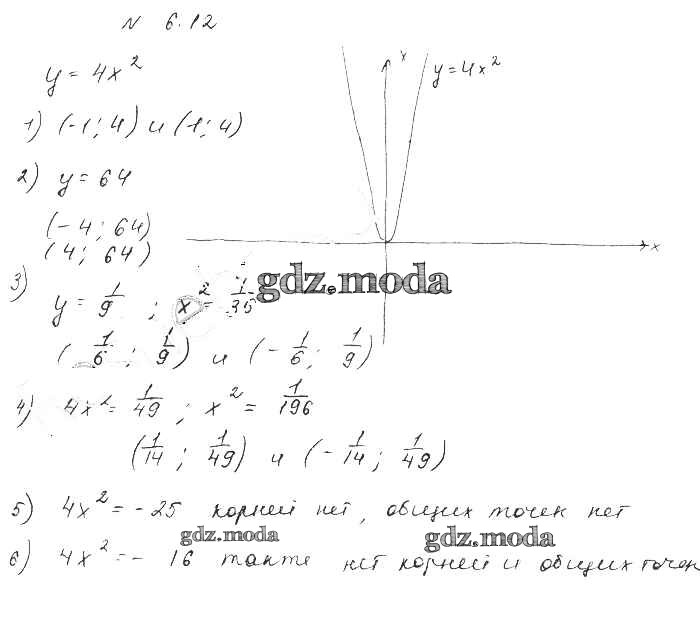 N 6.12
y = 4x²
1) (-1; 4) и (1; 4)
2) y = 64
(-4; 64)
(4; 64)
3) y = 1/9 ; x² = 1/36
(1/6 ; 1/9) и (-1/6 ; 1/9)
4) 4x² = 1/49 ; x² = 1/196
(1/14 ; 1/49) и (-1/14 ; 1/49)
5) 4x² = -25 корней нет, общих точек нет
6) 4x² = - 16 также нет корней и общих точек
y
y = 4x²
x
gdz.moda
gdz.moda
gdz.moda